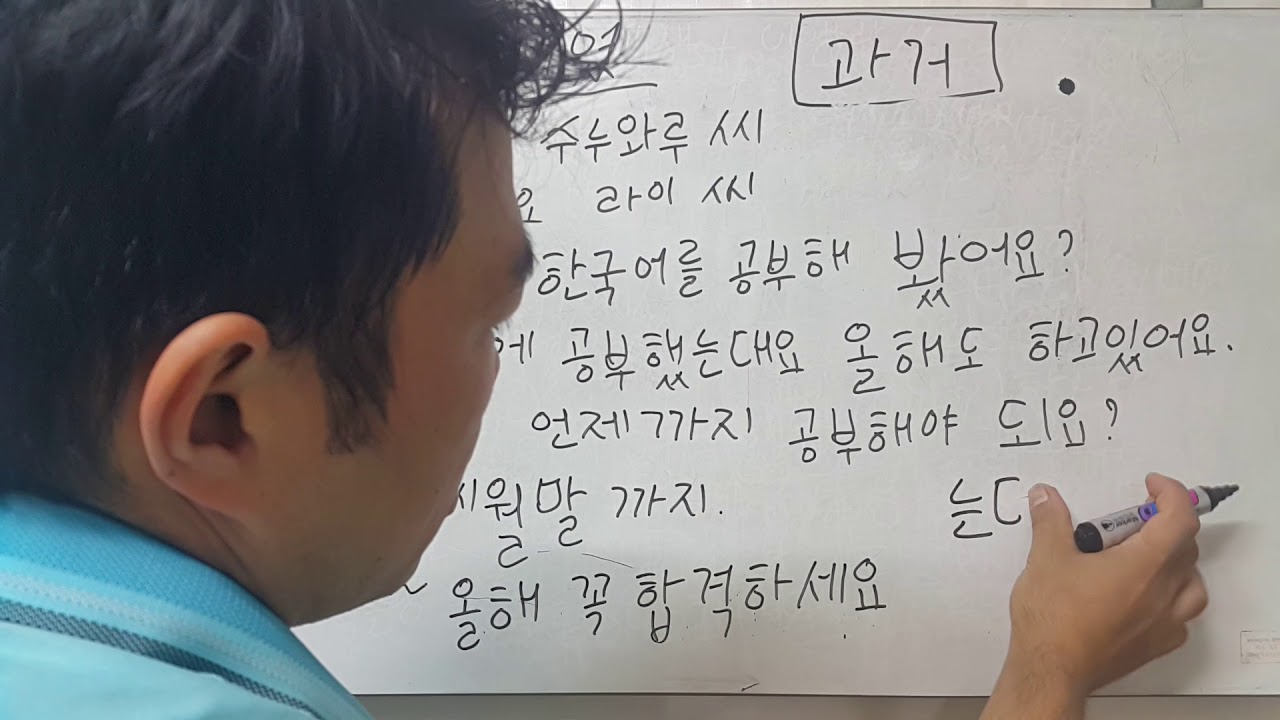 과거
수누와루 씨
요 라이 씨
한국어를 공부해 봤어요?
에 공부했는대요 올해도 하고있어요.
언제까지 공부해야 되요?
시월말 까지. 는ㄷ
~ 올해 꼭 합격하세요